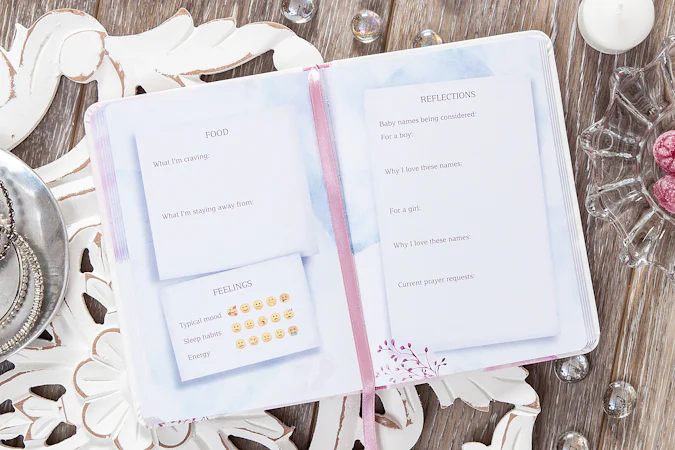 FOOD
What I'm craving:
What I'm staying away from:
FEELINGS
Typical mood
Sleep habits
Energy
REFLECTIONS
Baby names being considered:
For a boy:
Why I love these names:
For a girl:
Why I love these names:
Current prayer requests: